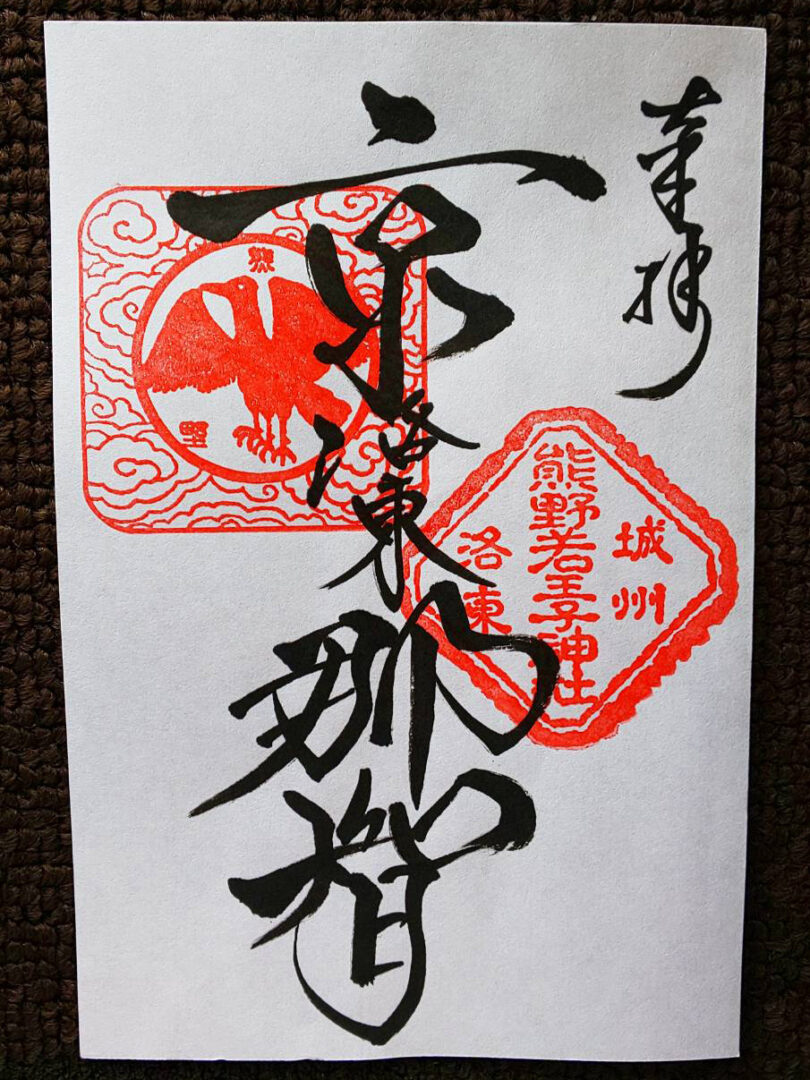 奉拝
京洛東那智
城州
熊野若王子神社
洛東
熊
野